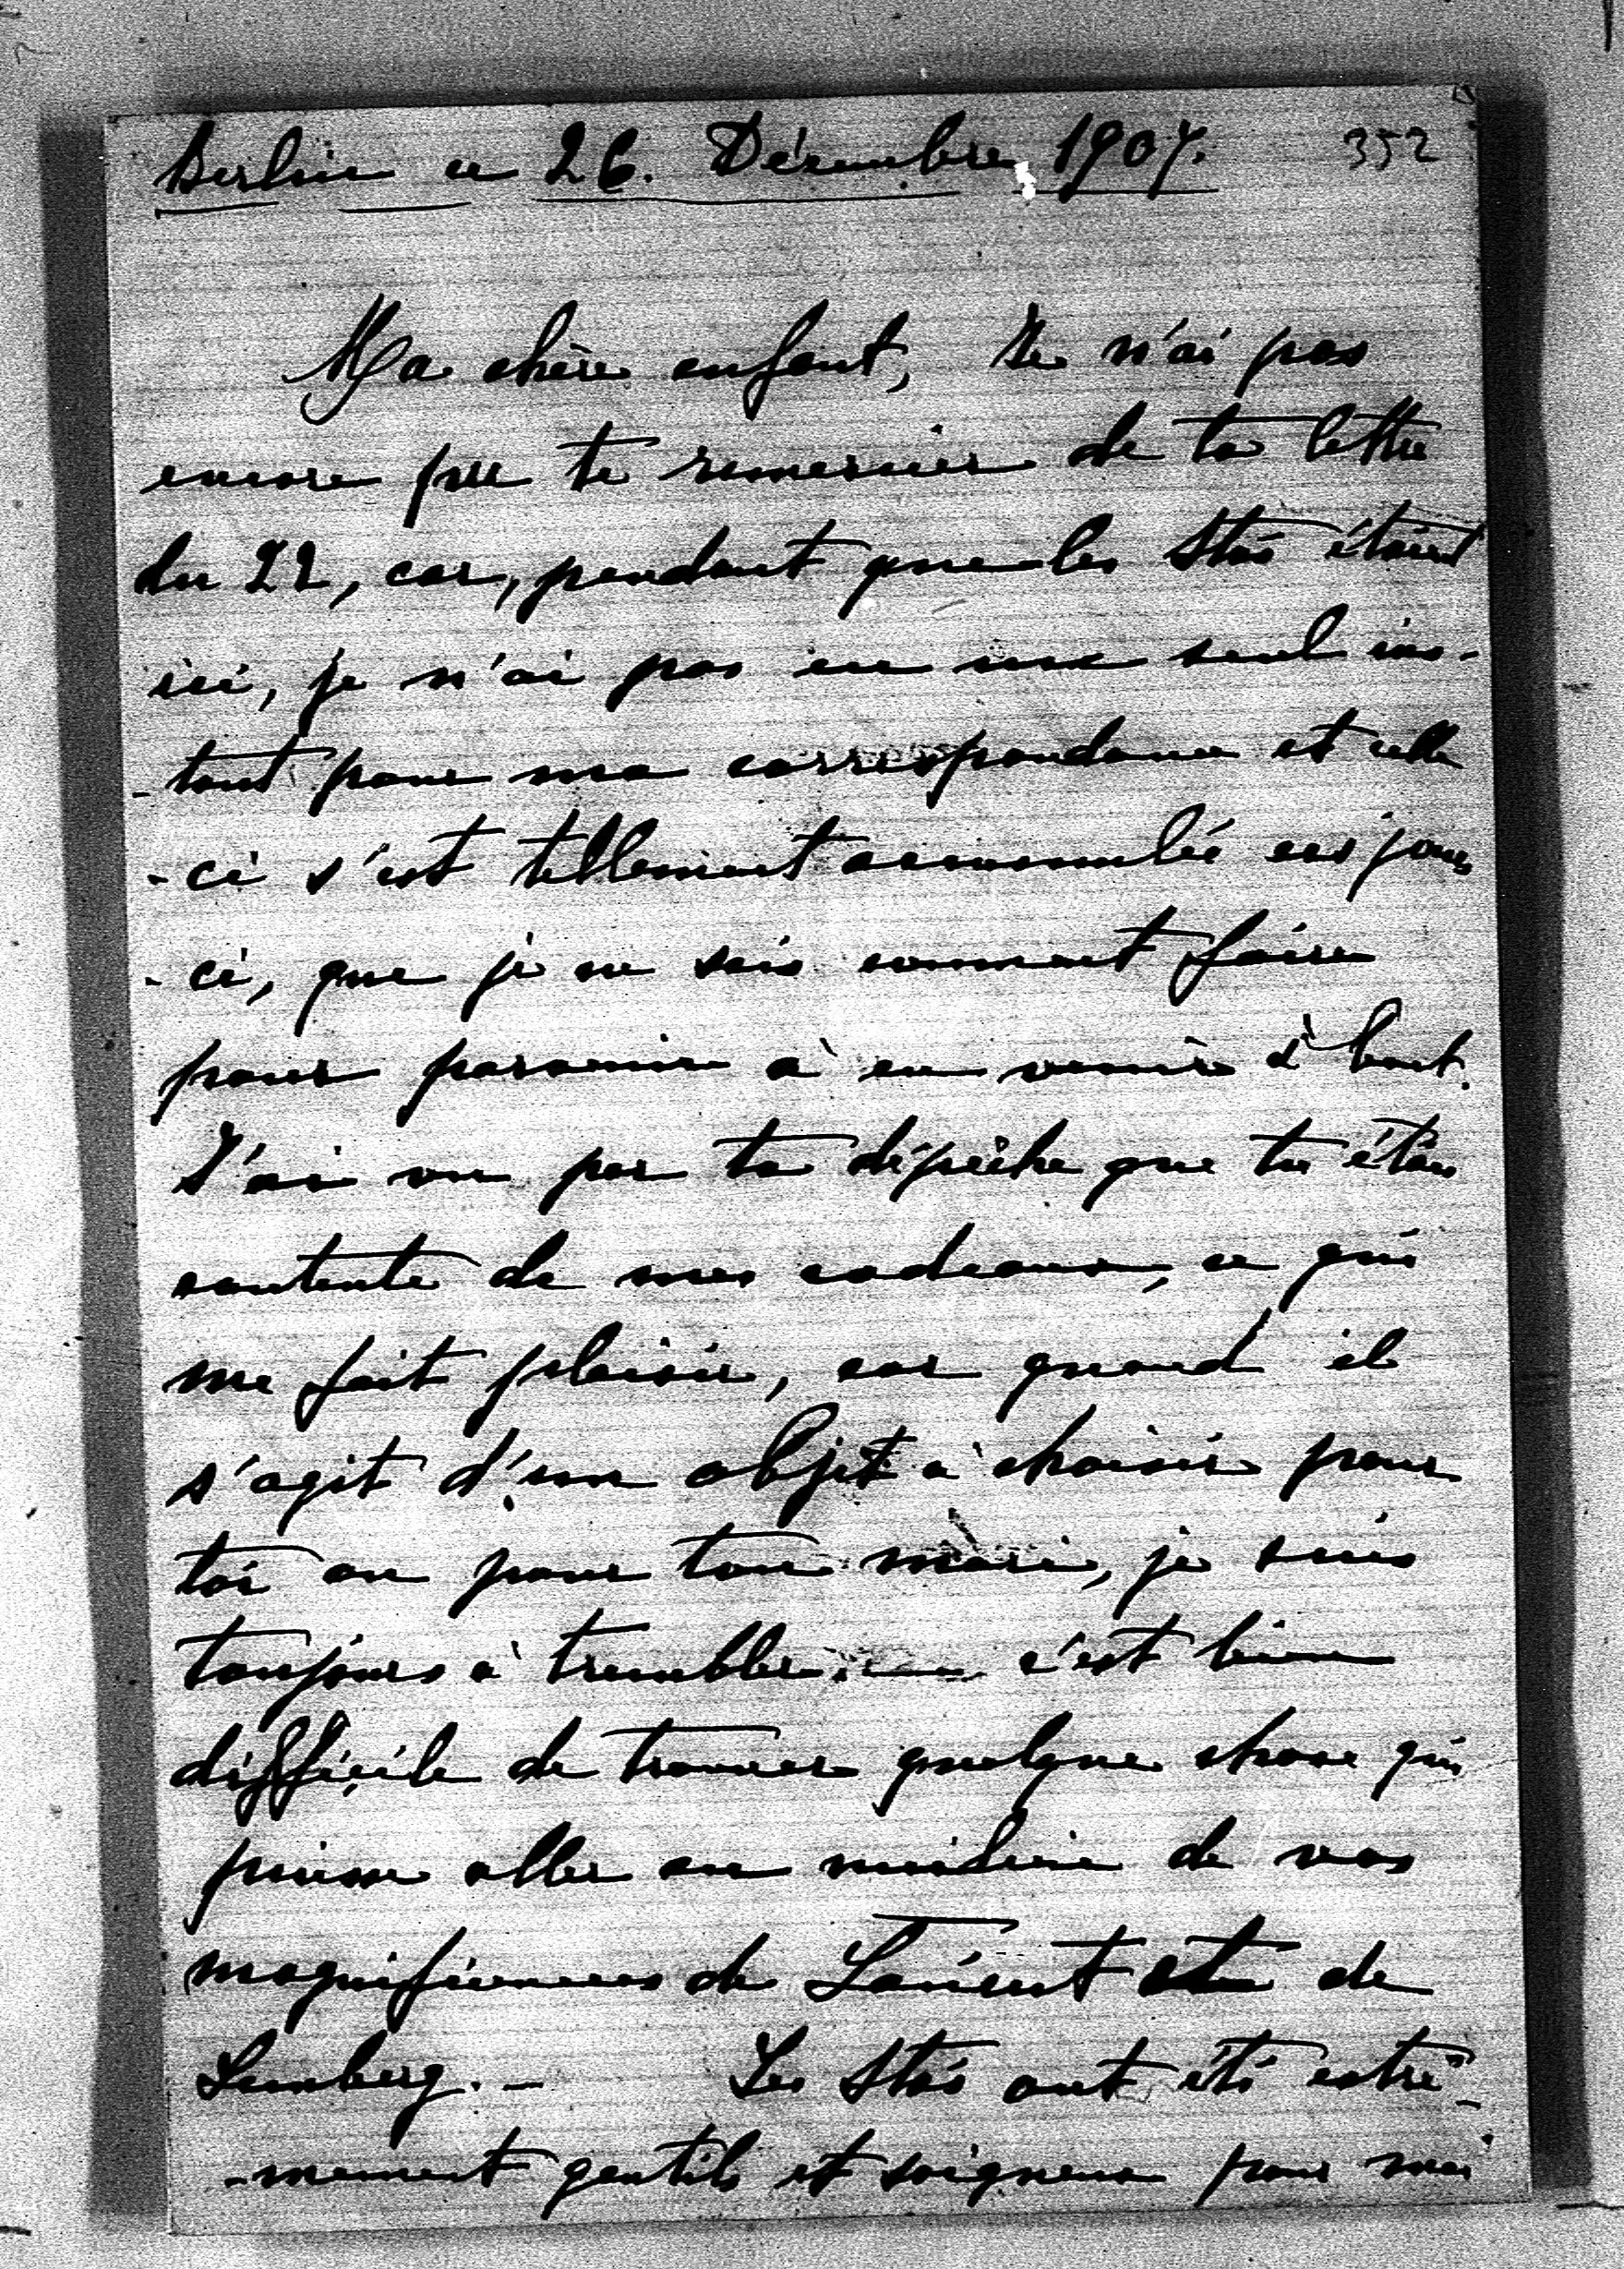 Berlin ce 26. Décembre 1907. 352
Ma chère enfant, Je n'ai pas
encore pu te remercier de ta lettre
du 22, car, pendant que les Stas étaient
ici, je n'ai pas eu un seul ins-
-tant pour ma correspondance et celle
-ci s'est tellement accumulée ces jours
-ci, que je ne sais comment faire
pour parvenir à en venir à bout.
J'ai vu par ta dépêche que tu étais
contente de mes cadeaux, ce qui
me fait plaisir, car quand il
s'agit d'un objet à choisir pour
toi ou pour ton mari, je suis
toujours à trembler: c'est bien
difficile de trouver quelque chose qui
puisse aller au milieu de vos
magnificences de Lancut et de
Lemberg. — Les Stas ont été extrê-
-mement gentils et soigneux pour moi